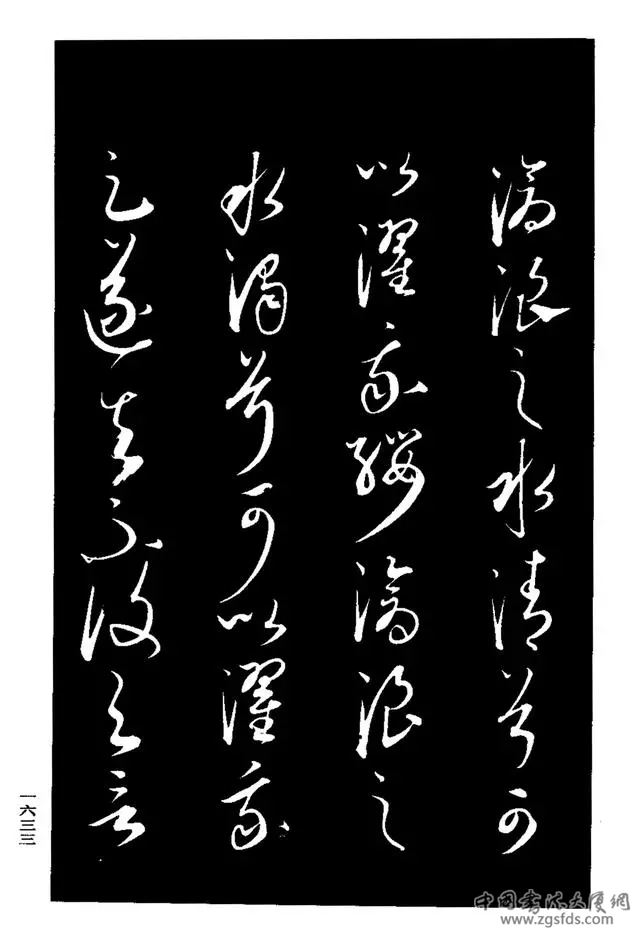 滄浪之水清兮可
以濯我纓滄浪之
水濁兮可以濯我
足遂去不復与言
一六三三
中国书法大厦網
www.zgsfds.com